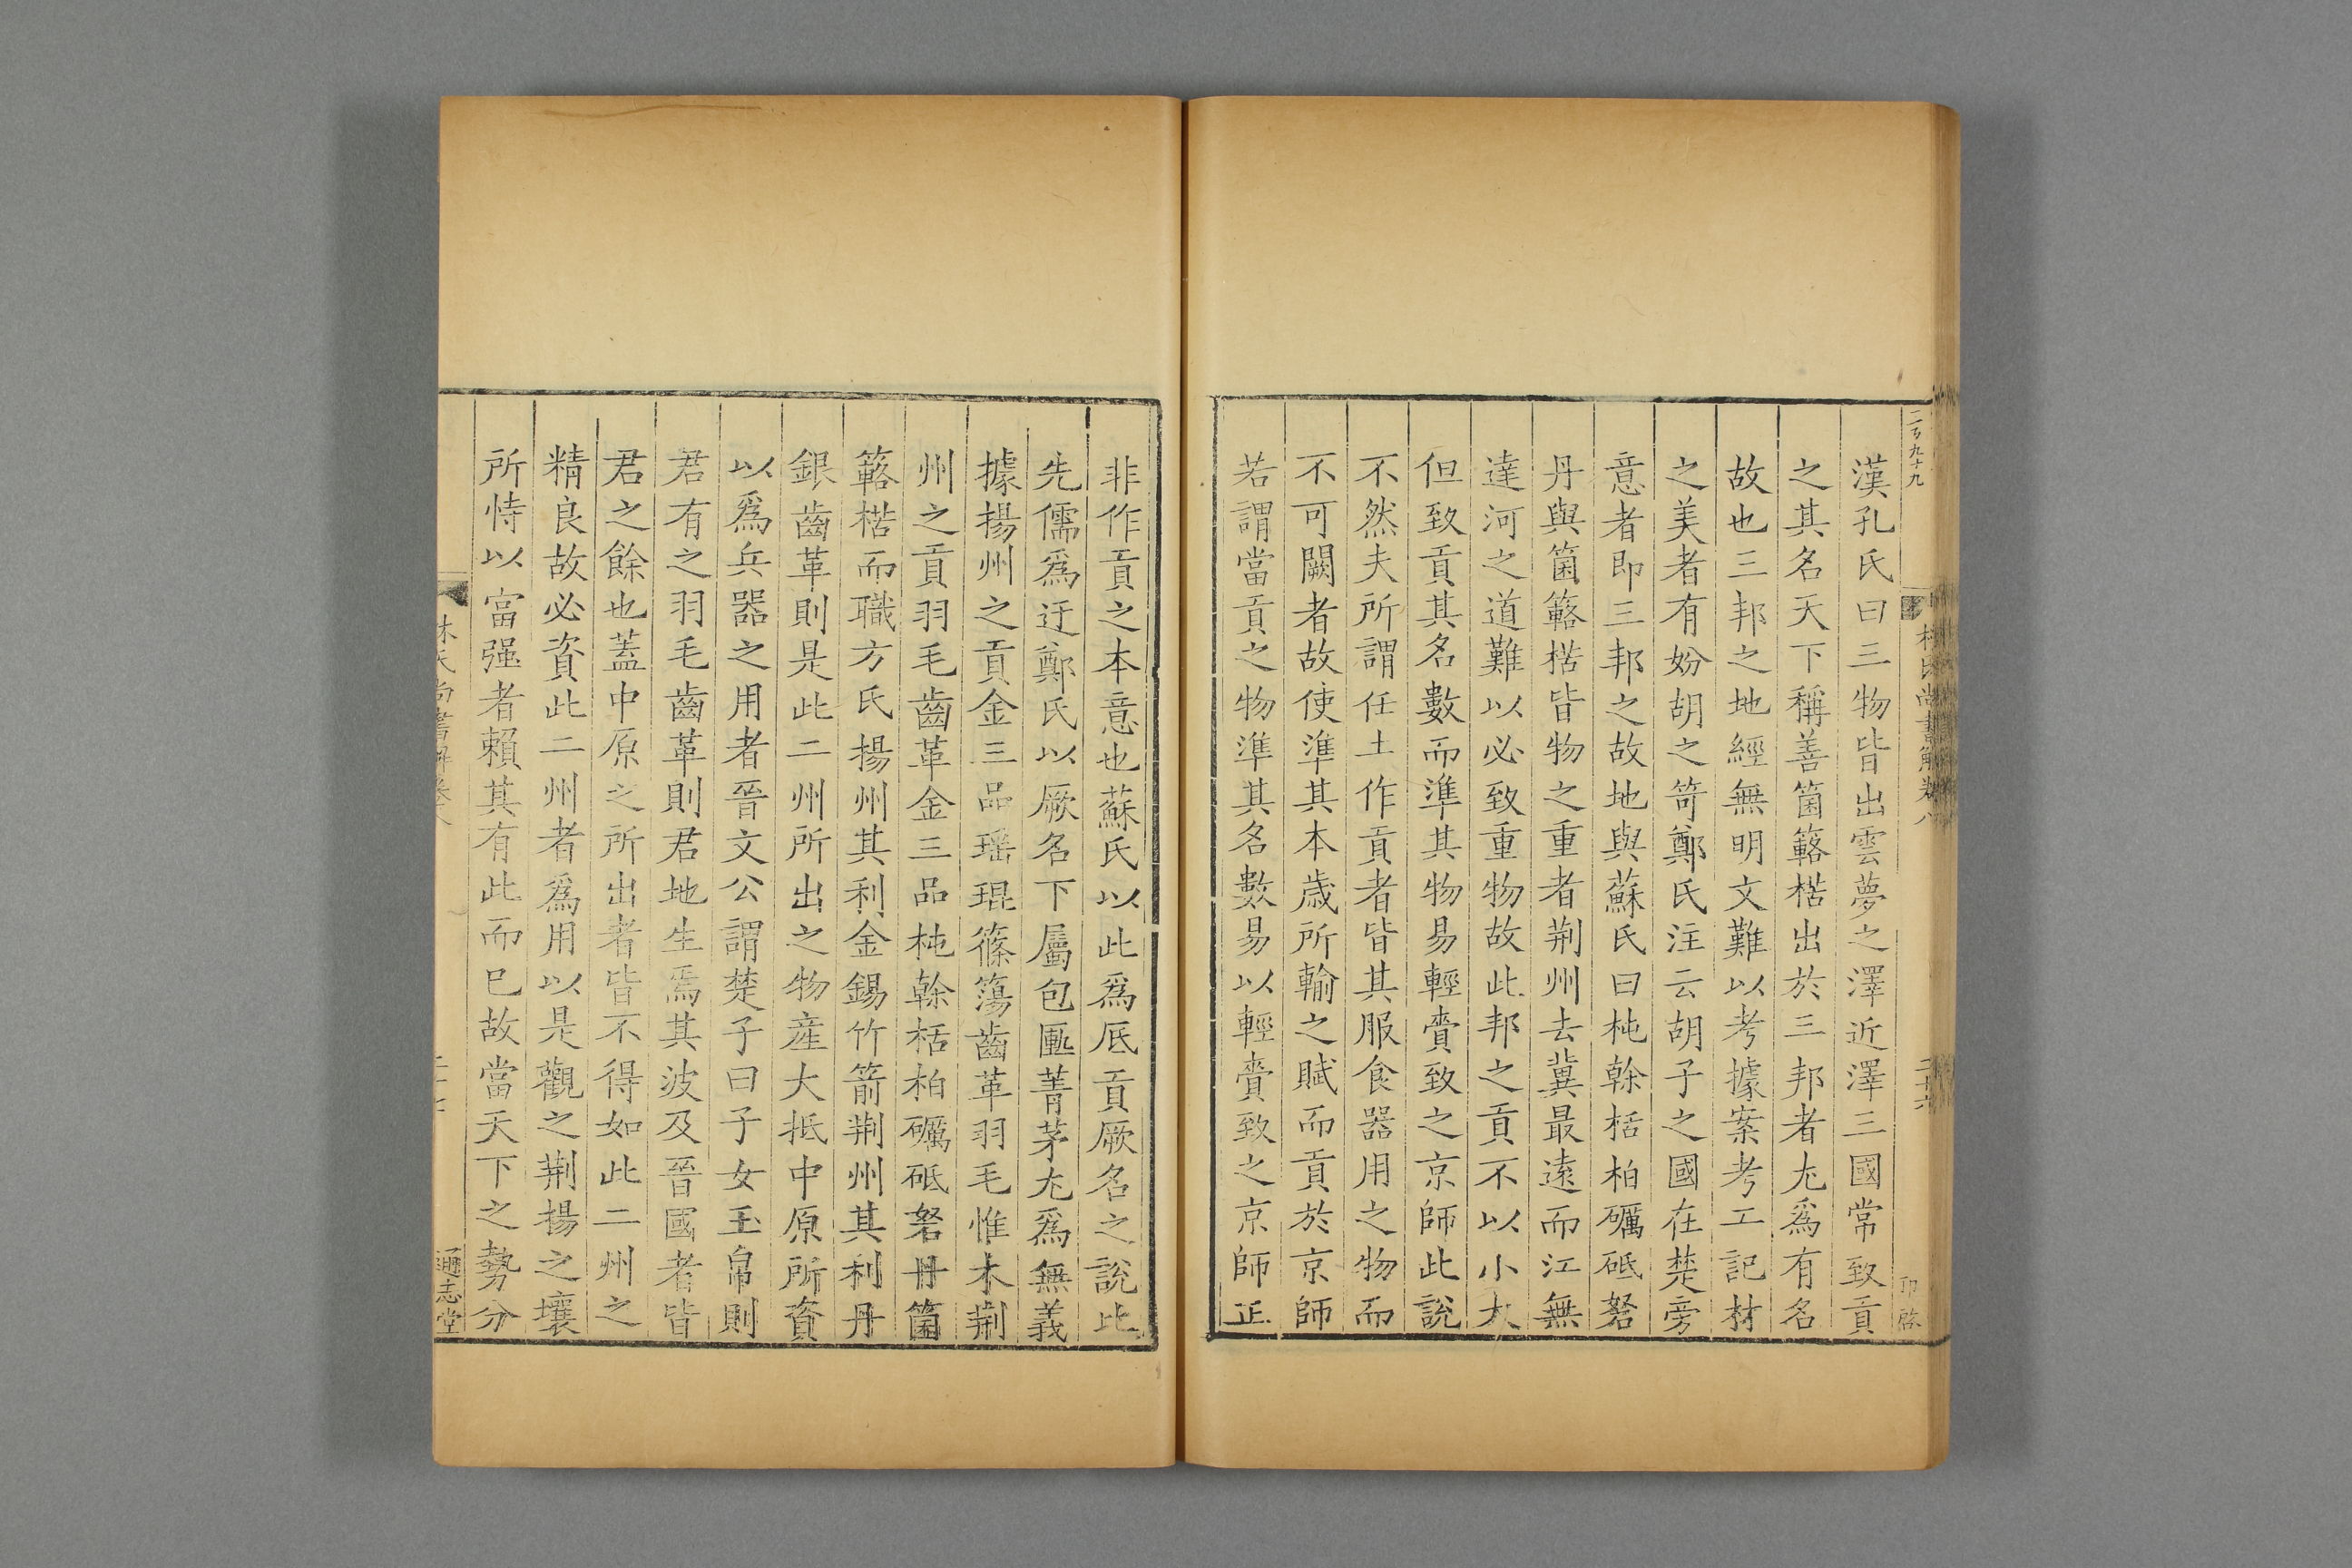 二百九十九
林氏尚書解卷八
二十六
漢孔氏曰三物皆出雲夢之澤近澤三國常致貢
之其名天下稱善箘簵楛出於三邦者尤爲有名
故也三邦之地經無明文難以考據案考工記材
之美者有妢胡之笴鄭氏注云胡子之國在楚旁
意者即三邦之故地與蘇氏曰杶榦栝柏礪砥砮
丹與箘簵楛皆物之重者荆州去冀最遠而江無
達河之道難以必致重物故此邦之貢不以小大
但致貢其名數而準其物易輕賷致之京師此說
不然夫所謂任土作貢者皆其服食器用之物而
不可闕者故使準其本歲所輸之賦而貢於京師
若謂當貢之物準其名數易以輕賷致之京師正
非作貢之本意也蘇氏以此爲厎貢厥名之說比
先儒爲迂鄭氏以厥名下屬包匭菁茅尤爲無義
據揚州之貢金三品瑶琨篠簜齒革羽毛惟木荆
州之貢羽毛齒革金三品杶榦栝柏礪砥砮丹箘
簵楛而職方氏揚州其利金錫竹箭荆州其利丹
銀齒革則是此二州所出之物產大抵中原所資
以爲兵器之用者晉文公謂楚子曰子女玉帛則
君有之羽毛齒革則君地生焉其波及晉國者皆
君之餘也蓋中原之所出者皆不得如此二州之
精良故必資此二州者爲用以是觀之荆揚之壤
所恃以富强者賴其有此而已故當天下之勢分
林氏尚書解卷八
通志堂